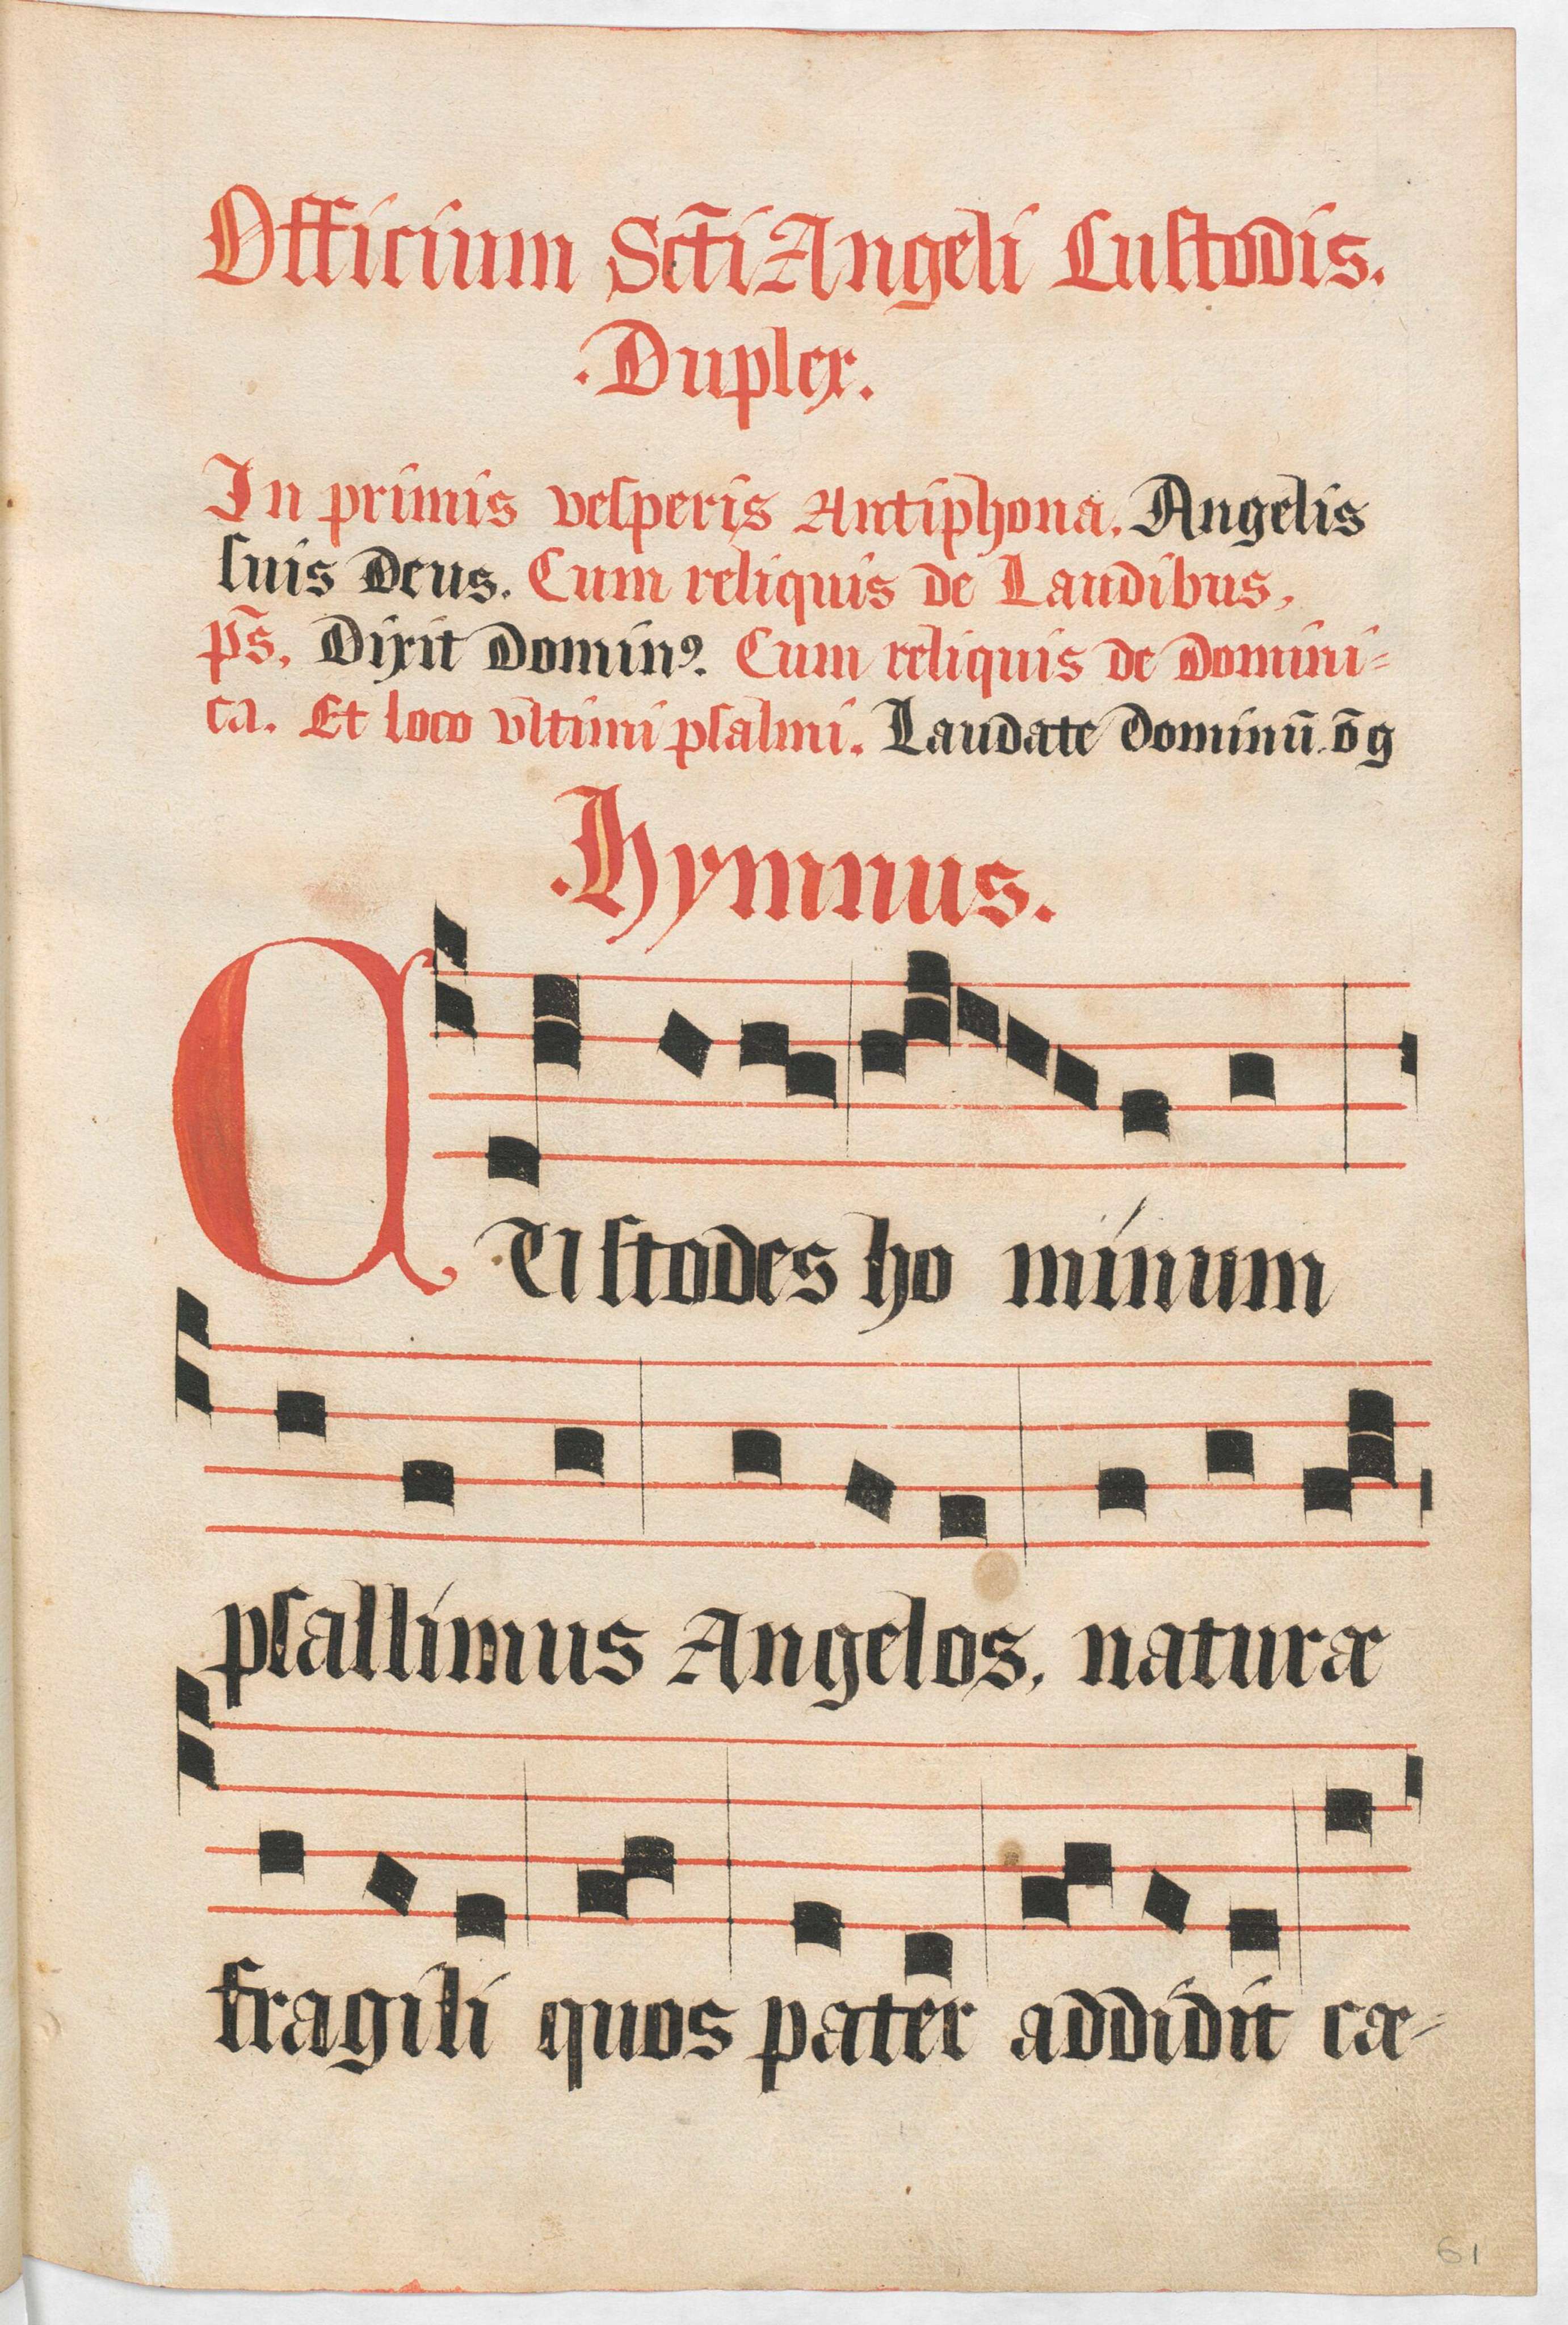 Officium Sc̃ti Angeli Custodis.
.Duplex.
In primis vesperis Antiphona. Angelis
suis Deus. Cum reliquis de Laudibus,
ps̃. Dixit Dominꝰ. Cum reliquis de Domini=
ca. Et loco vltimi psalmi. Laudate Dominũ. õg
.Hymnus.
CUstodes ho mínum
psallímus Angelos, naturæ
fragili quos pater addidit cæ=
61